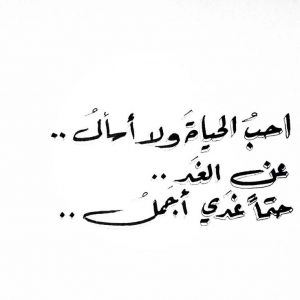 احبُ الحياةَ ولا أسألُ ..
عن الغَد ..
حتمًا غَدي أجَملُ ..